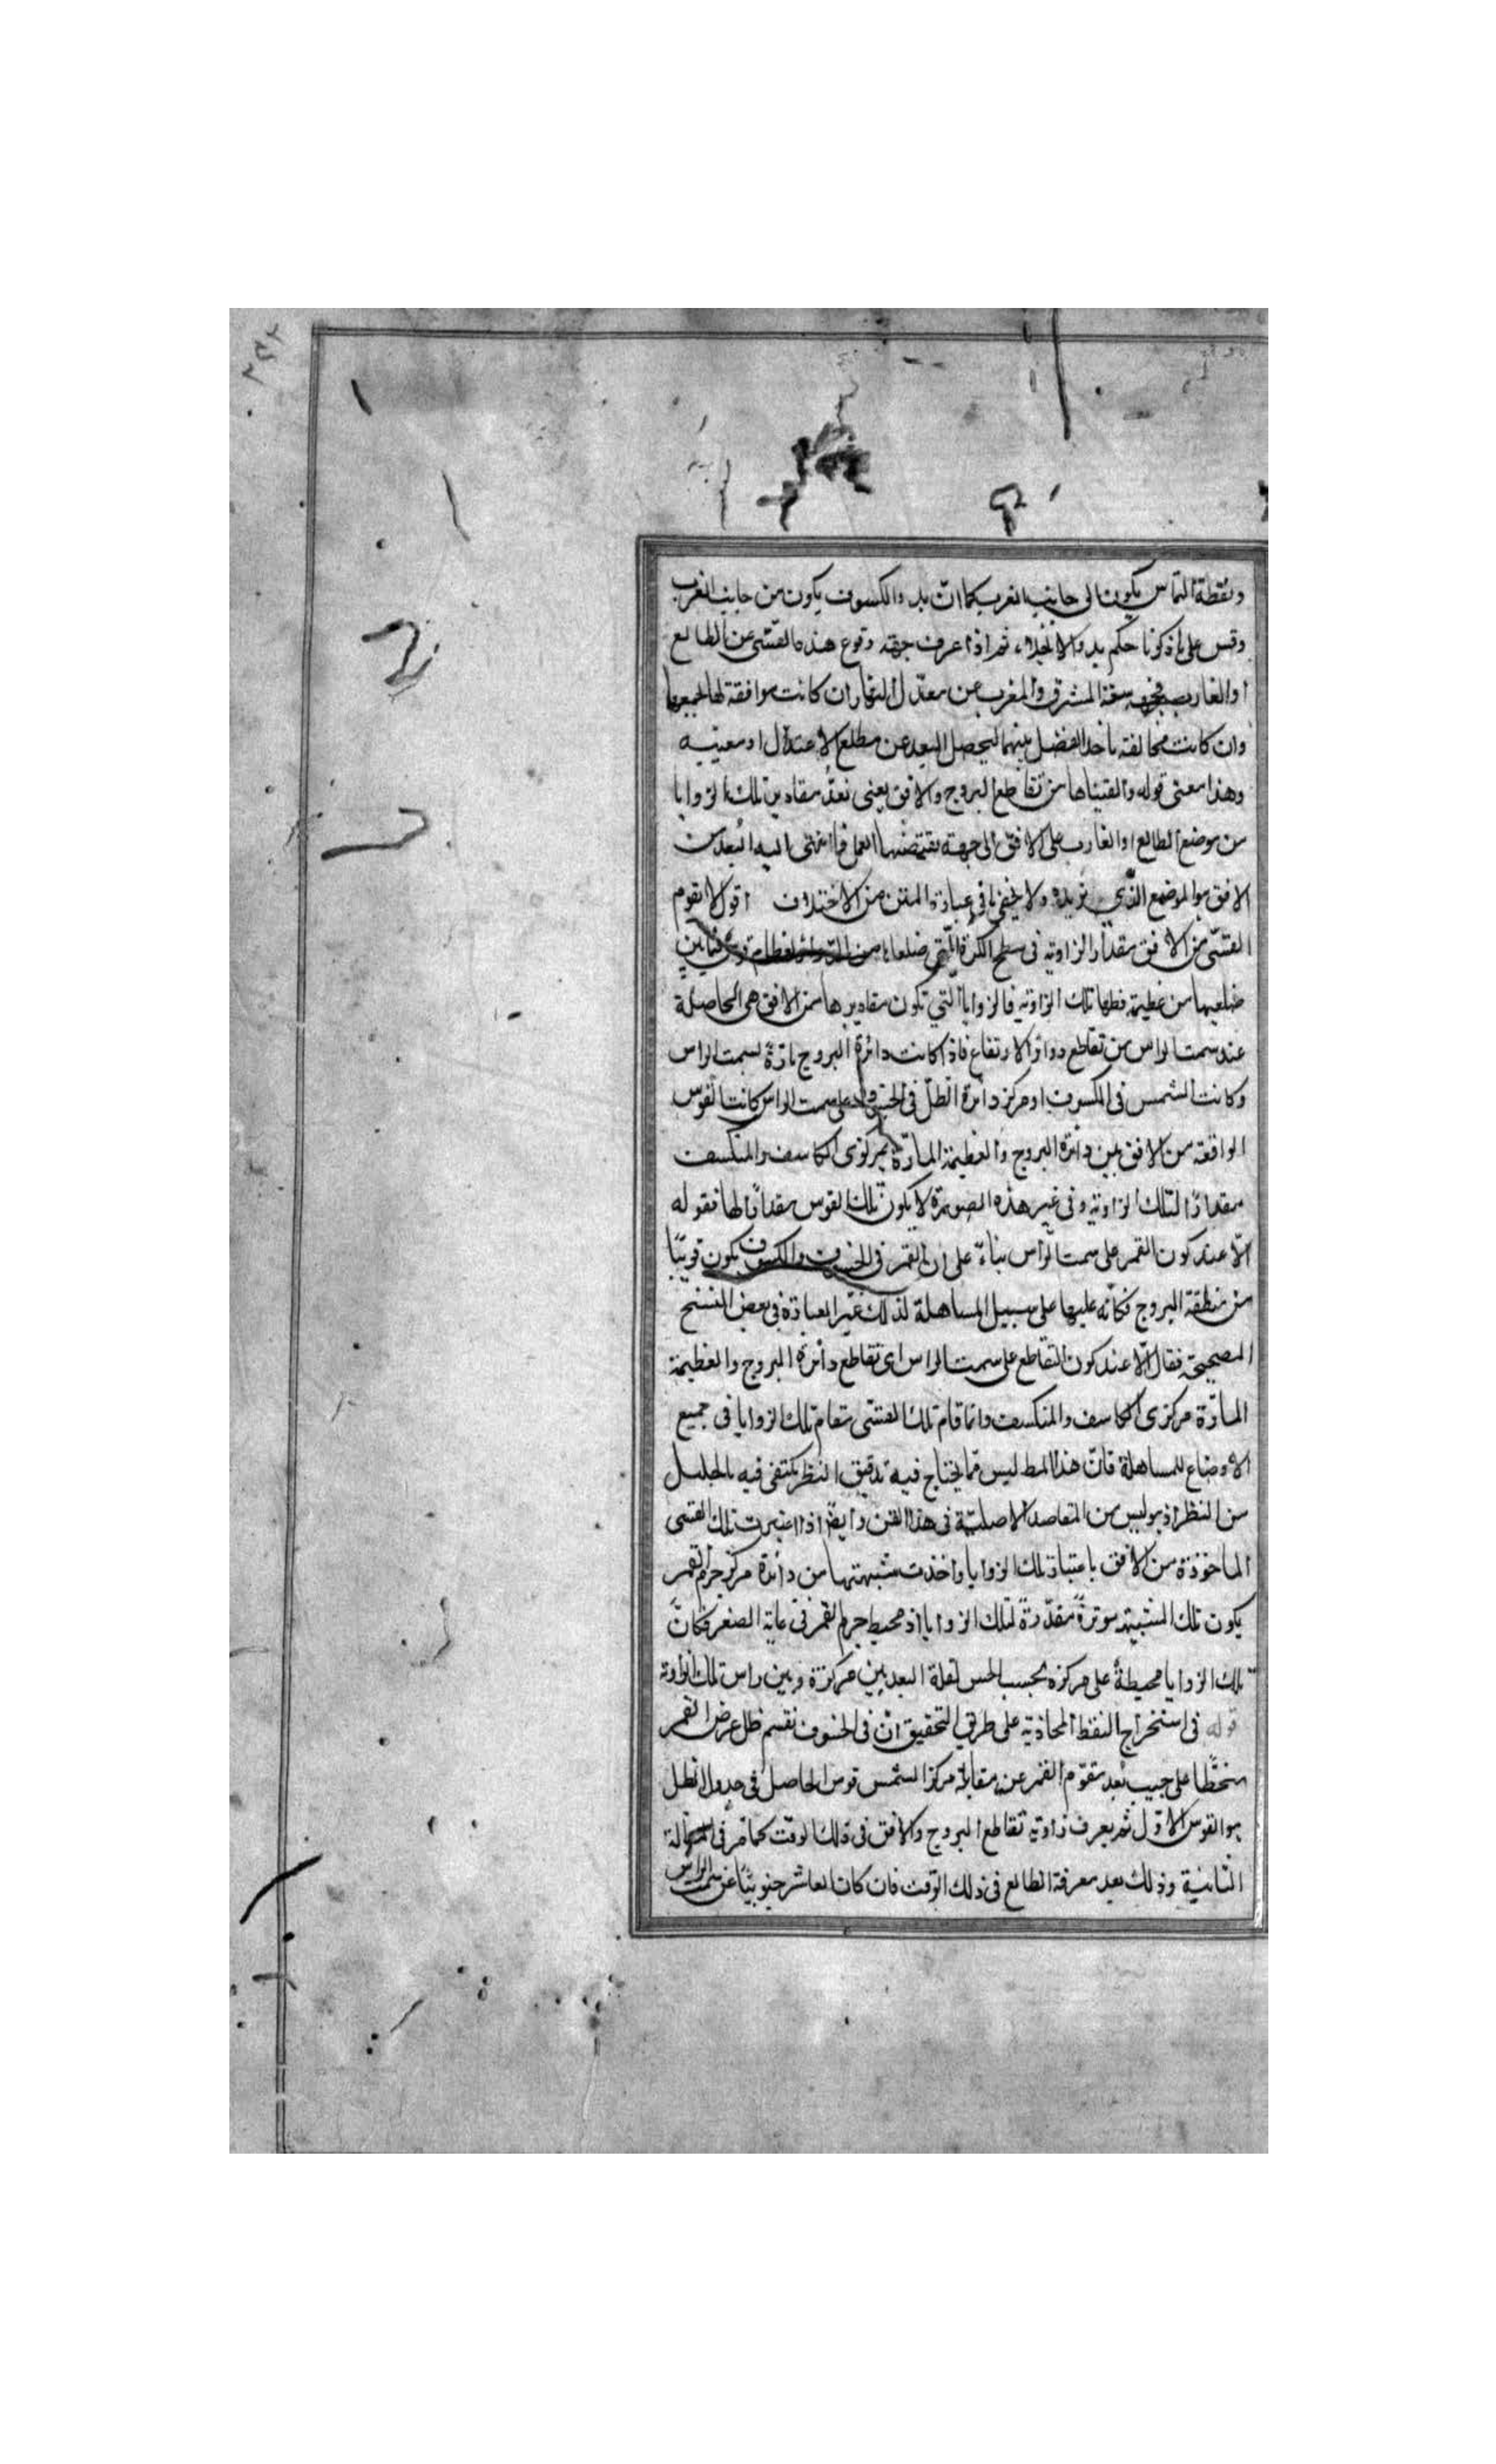 ونقطة التماس يكون الى جانب الغرب كما انّ بدو الكسوف يكون من جانب الغرب
وقس على ما ذكرنا حكم بدو الانجلاء، ثم اذا عرف جهة وقوع هذه القسّى عن الطالع
او الغارب سعة المشرق والمغرب عن معدّل النهار ان كانت موافقة لها نجمعها
وان كانت مخالفة نأخذ الفضل بينهما ليحصل البعد عن مطلع الاعتدال او مغيبه
وهذا معنى قوله والقيناها من تقاطع البروج والافق يعنى نعدّ مقادير تلك الزوايا
من موضع الطالع او الغارب على الافق الى جهة يقتضيها العمل فما انتهى اليه البعد من
الافق هو الموضع الذى نريده ولا يخفى ما فى عبارة المتن من الاختلاف اقول لا تقوم
القسّى من الافق مقدار الزاوية فى سطح الكرة التى ضلعاها من الدوائر العظام قوس ما بين
ضلعيها من عظيمة قطبها تلك الزاوية فالزوايا التي تكون مقاديرها من الافق هى الحاصلة
عند سمت الراس من تقاطع دوائر الارتفاع فاذا كانت دائرة البروج مارّة بسمت الراس
وكانت الشمس فى الكسوف او مركز دائرة الظلّ فى الخسوف على سمت الراس كانت القوس
الواقعة من الافق بين دائرة البروج والعظيمة المارّة بمركزى الكاسف والمنكسف
مقدارًا لتلك الزاوية وفى غير هذه الصورة لا يكون تلك القوس مقدارًا لها فقوله
الّا عند كون القمر على سمت الرّأس بناءً على ان القمر فى الخسوف والكسوف يكون قريبًا
من منطقة البروج فكأنّه عليها على سبيل المساهلة لذلك غيّر العبارة فى بعض النسخ
المصححة فقال الّا عند كون التقاطع على سمت الراس اى تقاطع دائرة البروج والعظيمة
المارّة بمركزى الكاسف والمنكسف وانما قام تلك القسّى مقام تلك الزوايا فى جميع
الاوضاع للمساهلة فانّ هذا المط ليس ممّا يحتاج فيه تدقيق النظر يكتفى فيه بالجليل
من النظر اذ هو ليس من المقاصد الاصليّة فى هذا الفن وايضًا اذا اعتبرت تلك القسى
الماخوذة من الافق باعتبار تلك الزوايا واخذت شبيهتها من دائرة مركز جرم القمر
يكون تلك الشبيهة موترةً مقدّرةً لتلك الزوايا اذ محيط جرم القمر فى غاية الصغر فكانّ
تلك الزوايا محيطةٌ على مركزه بحسب الحس لقلة البعد بين مركزه وبين راس تلك الزاوية
قوله فى استخراج النقط المحاذية على طريق التحقيق ان فى الخسوف نقسم ظل عرض القمر
منحطًّا على جيب بُعد مقوّم القمر عن مقابلة مركز الشمس قوس الحاصل فى جدول الظل
هو القوس الاوّل ثم يعرف زاوية تقاطع البروج والافق فى ذلك الوقت كما مرّ فى المقالة
الثانية وذلك بعد معرفة الطالع فى ذلك الوقت فان كان العاشر جنوبيًّا عن سمت الراس